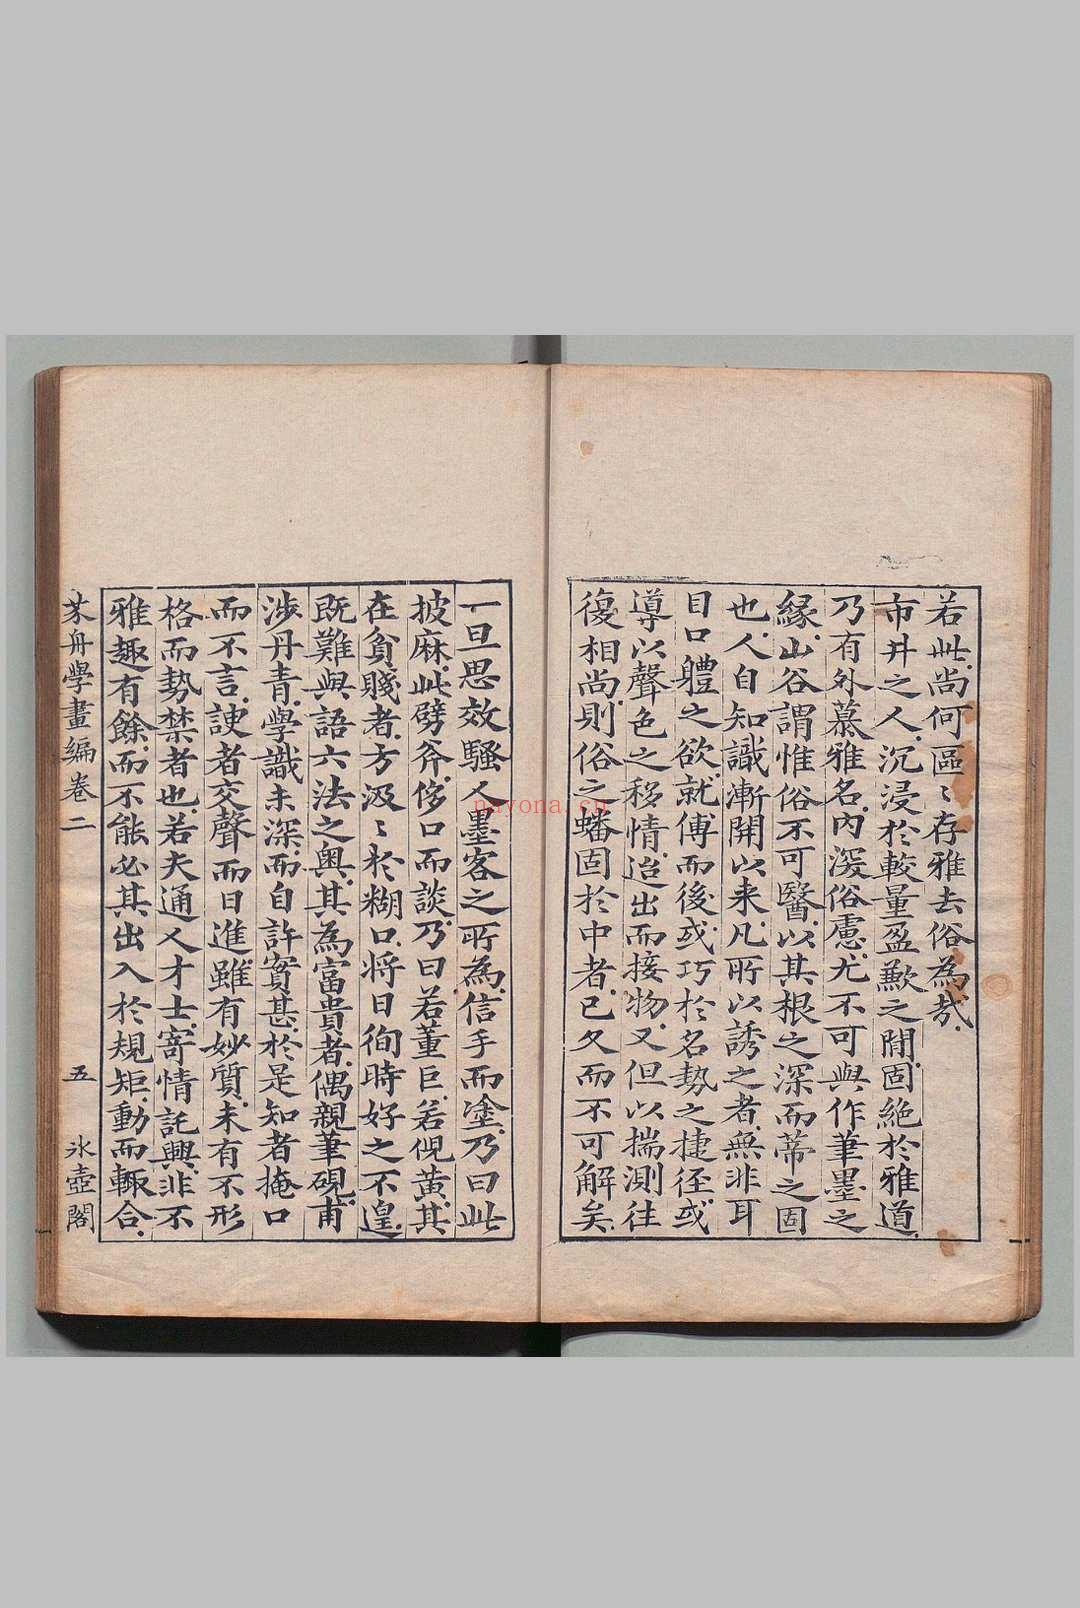 若此.尚何區〻存雅去俗為哉.
市井之人.沉浸於較量盈歉之間.固絶於雅道.
乃有外慕雅名.內深俗慮.尤不可與作筆墨之
緣.山谷謂惟俗不可醫.以其根之深而蒂之固
也.人自知識漸開以来.凡所以誘之者.無非耳
目口體之欲.就傅而後.或巧於名勢之捷徑.或
導以聲色之移情.迨出而接物.又但以揣測往
復相尚.則俗之蟠固於中者.已久而不可解矣.
一旦思效騷人墨客之所為.信手而塗.乃曰此
披麻.此劈斧.侈口而談.乃曰若董巨.若倪黃.其
在貧賤者.方汲〻於糊口.將日徇時好之不遑.
既難與語六法之奥.其為富貴者.偶親筆硯.甫
涉丹青.學識未深.而自許實甚.於是知者掩口
而不言.諛者交聲而日進.雖有妙質.未有不形
格而勢禁者也.若夫通人才士.寄情託興.非不
雅趣有餘.而不能必其出入於規矩.動而輙合.
芥舟學畫編卷二 五 冰壺閣
nayona.cn